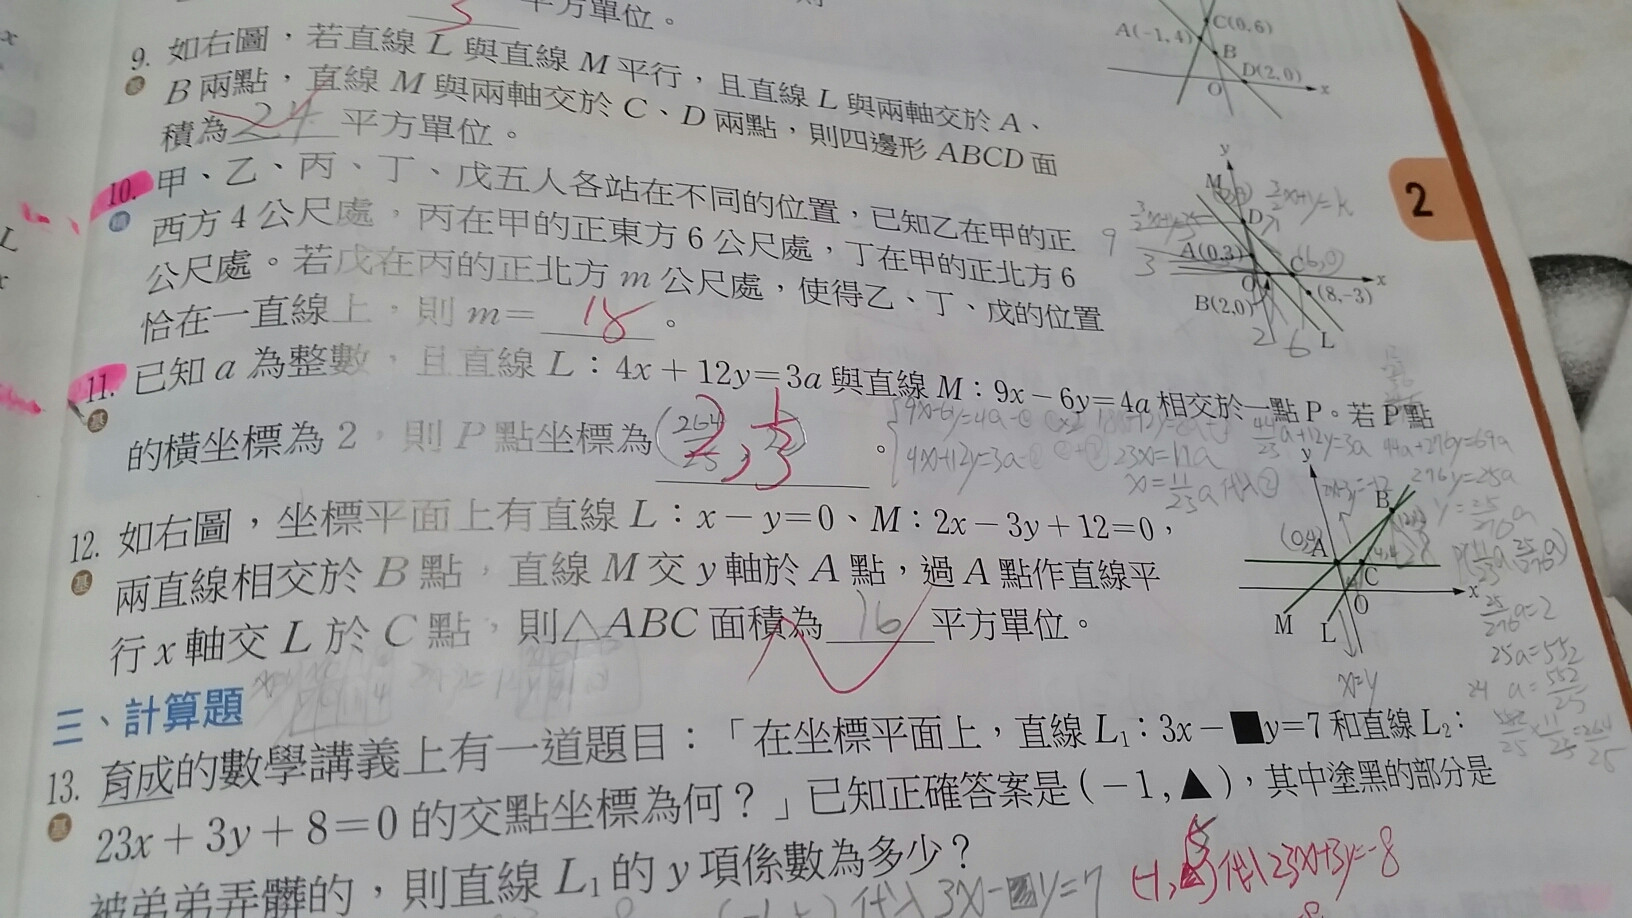 平方單位。
9. 如右圖，若直線 L 與直線 M 平行，且直線 L 與兩軸交於 A、
B 兩點，直線 M 與兩軸交於 C、D 兩點，則四邊形 ABCD 面
積為 24 平方單位。
10. 甲、乙、丙、丁、戊五人各站在不同的位置，已知乙在甲的正
西方 4 公尺處，丙在甲的正東方 6 公尺處，丁在甲的正北方 6
公尺處。若戊在丙的正北方 m 公尺處，使得乙、丁、戊的位置
恰在一直線上，則 m= 18 。
11. 已知 a 為整數，且直線 L：4x＋12y＝3a 與直線 M：9x－6y＝4a 相交於一點 P。若 P 點
的橫坐標為 2，則 P 點坐標為 。
12. 如右圖，坐標平面上有直線 L：x－y＝0、M：2x－3y＋12＝0，
兩直線相交於 B 點，直線 M 交 y 軸於 A 點，過 A 點作直線平
行 x 軸交 L 於 C 點，則△ABC 面積為 16 平方單位。
三、計算題
13. 育成的數學講義上有一道題目：「在坐標平面上，直線 L₁：3x－■y＝7 和直線 L₂：
23x＋3y＋8＝0 的交點坐標為何？」已知正確答案是（－1,▲），其中塗黑的部分是
被弟弟弄髒的，則直線 L₁ 的 y 項係數為多少？
A(−1,4)
C(0,6)
B
D(2,0)
O
x
2
y
M
D
A(0,3)
C
x
O
B(2,0)
(8,−3)
L
2
6
9
3
y
B
(0,4)
A
C
x
O
M
L
x=y
23x=11a
276y=25a
25a=552
代入 3x−■y=7
代入 23x+3y=−8